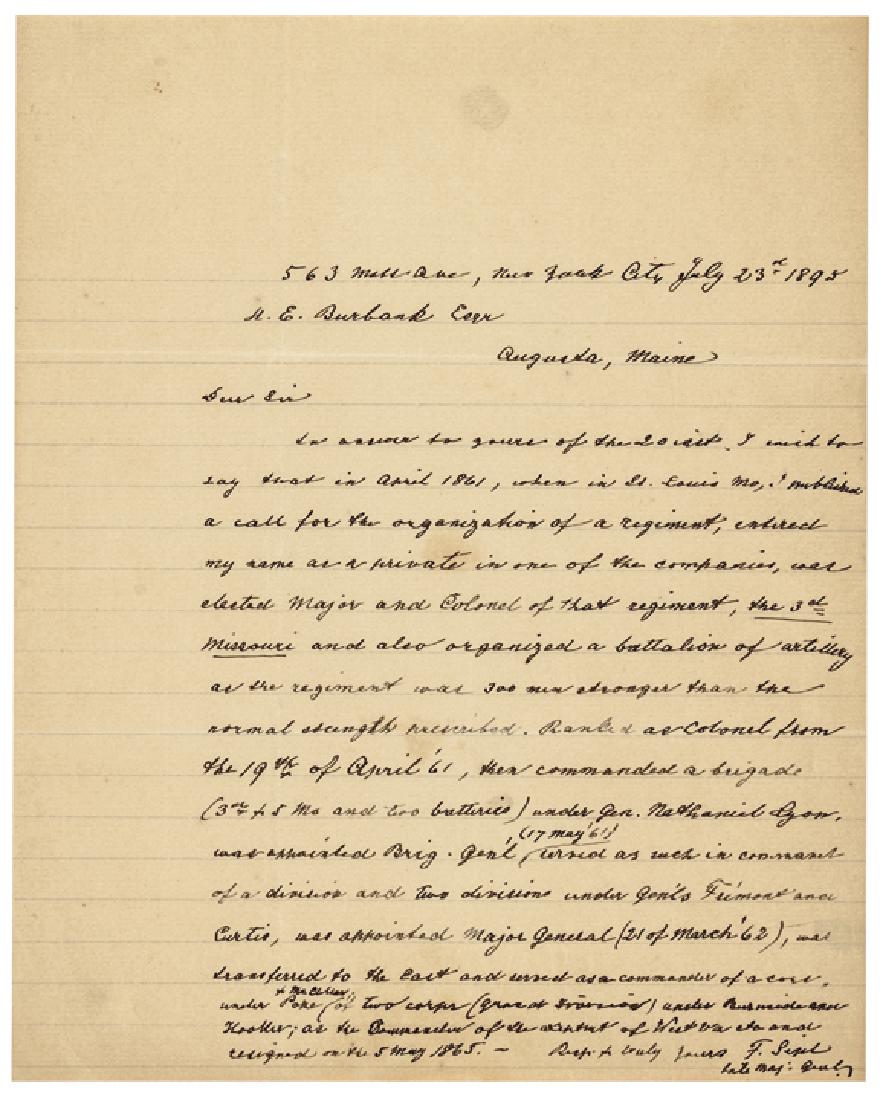 563 Mott Ave, New York City July 23rd 1895
E. Burbank Esqr
Augusta, Maine
Dear Sir
In answer to yours of the 20 inst. I wish to
say that in April 1861, when in St. Louis Mo, I published
a call for the organization of a regiment, entered
my name as a private in one of the companies, was
elected Major and Colonel of that regiment, the 3rd
Missouri and also organized a battalion of artillery
as the regiment was 300 men stronger than the
normal strength prescribed. Ranked as Colonel from
the 19th of April '61, then commanded a brigade
(3rd & 5 Mo and two batteries) under Gen. Nathaniel Lyon,
was appointed Brig. Genl, (17 May '61) served as such in command
of a division and two divisions under Genls Frémont and
Curtis, was appointed Major General (21 of March '62), was
transferred to the East and served as a commander of a corps,
& McClellan
under Pope of two corps (grand division) under Burnside and
Hooker; as the Commander of the of West Va and
resigned on the 5 May 1865. — Resp. & truly yours F. Sigel
late Maj: Genl